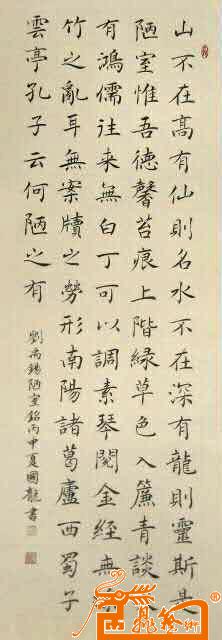 山不在高有仙則名水不在深有龍則靈斯是
陋室惟吾德馨苔痕上階綠草色入簾青談
有鴻儒往來無白丁可以調素琴閱金經無
竹之亂耳無案牘之勞形南陽諸葛廬西蜀子
雲亭孔子云何陋之有
劉禹錫陋室銘丙申夏國龍書